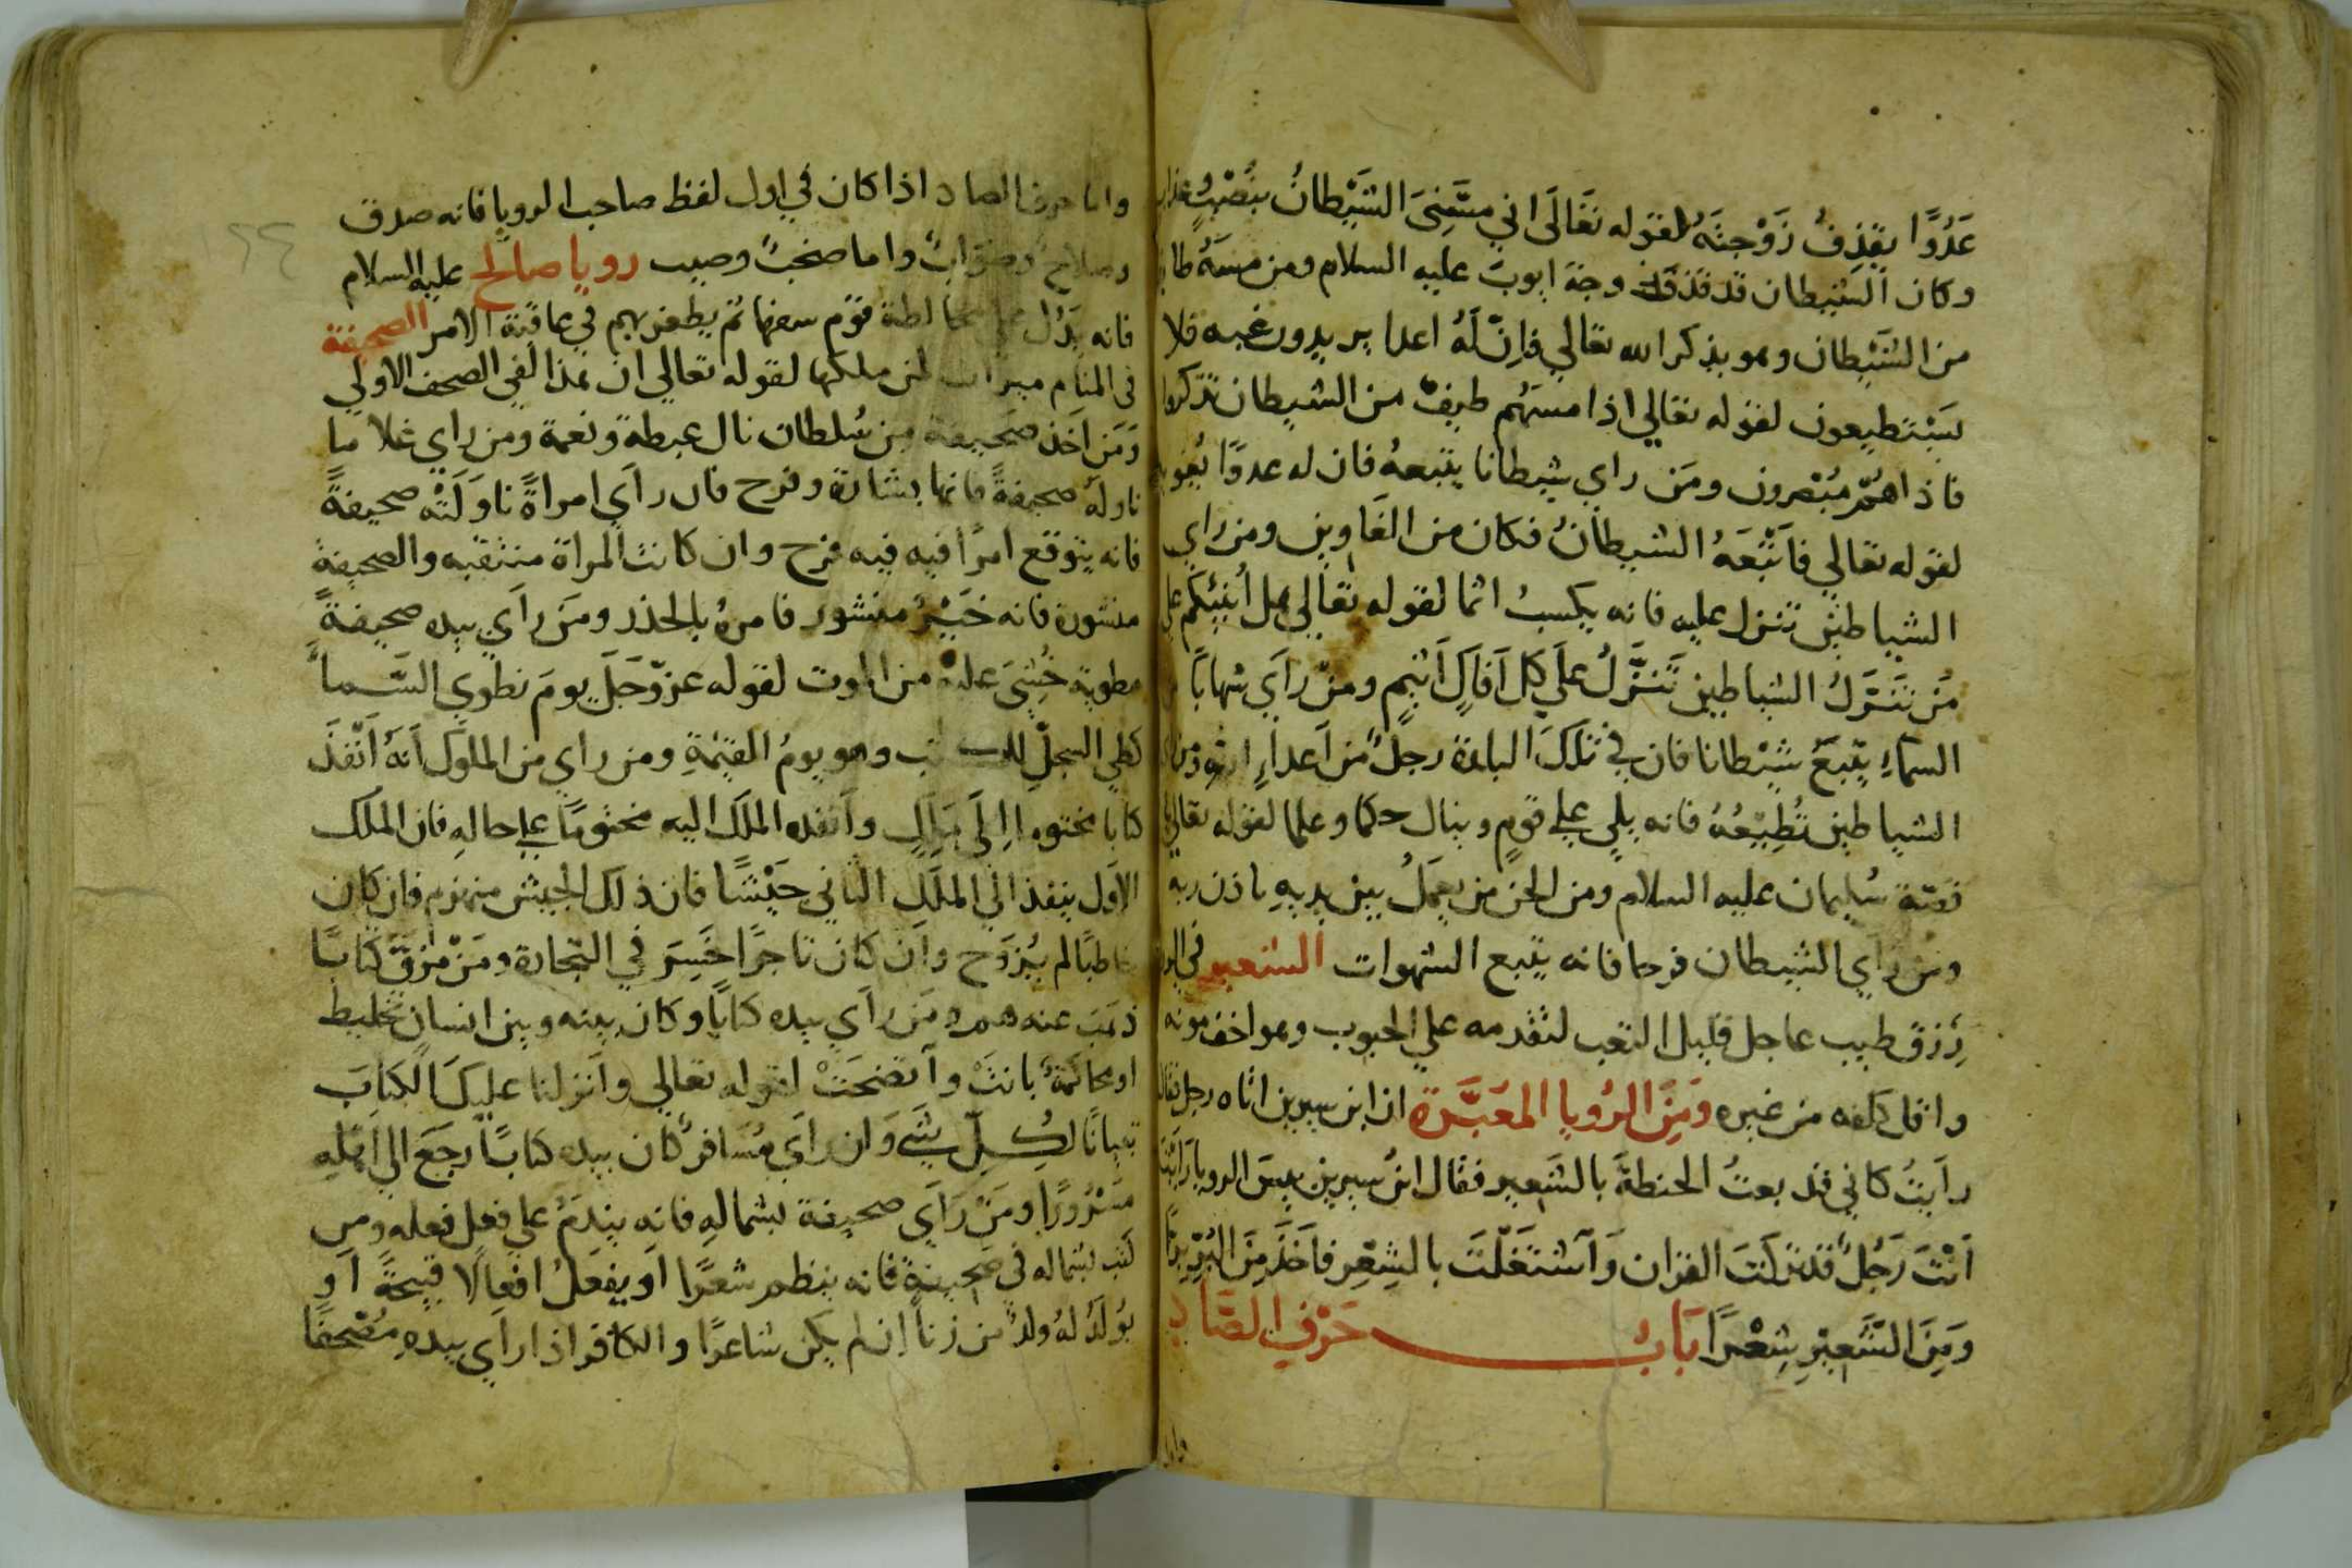 عَدُوًّا يقذِفُ زَوْجتَهُ لقوله تَعَالَى اني مسَّنِىَ الشَّيْطانُ بنُصْبٍ وعذاب
وكان الشيطان قد قذف زوجة ايوبَ عليه السلام ومن مسَهُ طايف
من الشَّيْطان وهو يذكر الله تعالي فاِنّ لَهُ اعدا يريدون غيه فلا
يَسْتطيعون لقوله تعالي اذا مسهُم طيفٌ من الشيطان تذكروا
فاذاهُمّ مُبْصرون ومَن راي شيطانا يتبعهُ فان له عدوًا يُغويه
لقوله تعالي فاَتْبَعَهُ الشيطانُ فكان من الغَاوين ومن راي
الشياطين تنزل عليه فانه يكسبُ اثما لقوله تعالي هل أُنبِئكُم علي
مَن تَنَزَّلُ الشياطين تَنَزَّلُ علَي كل اَفاكٍ اَثيمٍ ومنْ راَي شهابًا
السمآءِ يتبَعُ شَيْطانا فان في تلكَ البلدة رجلٌ من اَعدآءِ الله ومن راي
الشياطين تُطِيْعُهُ فانه يلي علي قومٍ وينال حكما وعلما لقوله تعالي
قصّة سُليمان عليه السلام ومن الجن من يعملُ بين يديهِ باذن ربه
ومن راَي الشيطان فرحا فانه يتبع الشهوات الشعير في
رِزق طيب عاجل قليل التعب لتقدمه علي الحبوب وهو اخف مونه
واقل كلفه من غيره وَمِنَ الرُويا المعَبَّرة ان ابن سيرين اتاه رجل فقال
راَيتُ كاني قد بعتُ الحنطةَ بالشَعير فقال ابنُ سيرين بيسَ الرويا رَايْتَ
اَنْتَ رَجُلٌ قد تركتَ القران وَآشتَغَلْتَ بالشِعْر فاَخذَ مِنَ البُرِّ
وَمِنَ الشَّعِيْرِ شِعْرًا بَابُ حَرْفِ الصَّادِ
واما
واما حرف الصاد اذا كان في اول لفظ صاحب الرويا فانه صدق
وصلاح وصَوَابٌ واما صخبٌ وصيب رويا صالح عليه السلام
فانه يَدُل علي مخالطة قوْم سفها ثم يظفر بهم في عاقبة الامر الصحيفة
في المنام ميراث لمن ملكها لقوله تعالي ان هذا لفي الصحف الاولي
وَمَن اَخذ صَحيفة من سُلطان نال غبطةً ونعمة ومن راي غلاما
ناوله صحيفةً فانها بشارة وفرح فان راَي امراةً ناوَلَتْه صحيفةً
فانه يتوقع امرًا فيه فيه فرح وان كانت المراة منتقبه والصحيفة
منشورة فانه خَبَرٌ منشور فامرهُ بالحذر ومَن راَي بيده صحيفةً
مطوية خُشِىَ عليه من الموت لقوله عزوّجَلَّ يومَ نطوي السَّمآ
كطي السجلِّ للكتب وهو يومُ القيٰمةِ ومن راي من الملوك اَنهُ اَنْفذَ
كتابا مختوما اِلَي مَلِكٍ وآنفده الملك اليه مختومًا علي حالهِ فان الملك
الاوَل ينفذ الي الملَك الثاني جيْشًا فان ذلك الجيش منهزم فان كان
خاطبًا لم يُزوَج وآن كان تاجرًا خَسِرَ في التجارة ومَنْ مزقَّ كتابًا
ذهَبَ عنه همه ومَن راَي بيده كتابًا وكان بينه وبين انسان تخليط
او محاكمة بانتْ وآتضحَتْ لقوله تعالي وآنزلنا عليكَ الكتابَ
تبيانًا لكُلِّ شَيء وَان راَي مُسَافرٌ كان بيده كتابًا رجَعَ الي اَهلهِ
مَسْرُورًا ومَنْ رَاَي صحيفة بشمالهِ فانه يندَمُ علي فعل فعله ومن
كتب بشماله في صَحيفة فانه ينظم شعرًا اَو يفعَلُ افعالًا قبيحةً اَو
يُولَدُ لهُ ولدٌ من زناً ان لم يكن شاعرًا والكافر اذا راَي بيدهِ مُصْحفًا